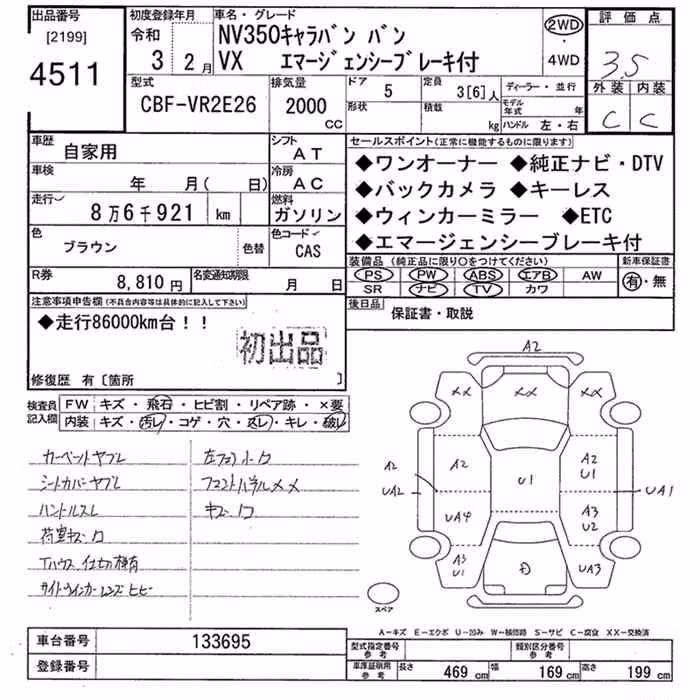 出品番号 [2199] 4511
初度登録年月 令和 3 2月
車名・グレード NV350キャラバン バン
VX エマージェンシーブレーキ付
2WD ・ 4WD
評価点 3.5
外装 内装
C C
型式 CBF-VR2E26
排気量 2000 CC
ドア 5
定員 3[6]人
形状
積載 kg
ディーラー・並行
モデル年式 年
ハンドル 左・右
車歴 自家用
シフト AT
車検 年 月( 日)
冷房 AC
走行 8万6千921 km
燃料 ガソリン
色 ブラウン 色替
色コード CAS
R券 8,810円
名変通知期限 月 日
セールスポイント(正常に機能するものに限ります)
◆ワンオーナー ◆純正ナビ・DTV
◆バックカメラ ◆キーレス
◆ウィンカーミラー ◆ETC
◆エマージェンシーブレーキ付
装備品 (純正品に限り○をつけてください)
新車保証書
PS PW ABS エアB AW
SR ナビ TV カワ
有・無
後日品 保証書・取説
注意事項申告欄(不具合内容等は具体的に記入して下さい)
◆走行86000km台!!
初出品
修復歴 有〔箇所 〕
検査員記入欄
FW キズ・飛石・ヒビ割・リペア跡・×要
内装 キズ・汚レ・コゲ・穴・スレ・キレ・破レ
カーペットヤブレ
シートカバーヤブレ
フロントパネルメメ
ハンドルスレ
荷室キズ
仕切棒有
サイドウインカーレンズヒビ
A2
XX XX XX
A2 UA2
A2
U1
A2 U1
UA1
UA4
A3 U2
A3 U1
UA3
スペア
A-キズ E-エクボ U-凹み W-補修跡 S-サビ C-腐食 XX-交換済
車台番号 133695
登録番号
型式指定番号 参考
類別区分番号 参考
車庫証明用 参考 長さ 469 cm 幅 169 cm 高さ 199 cm